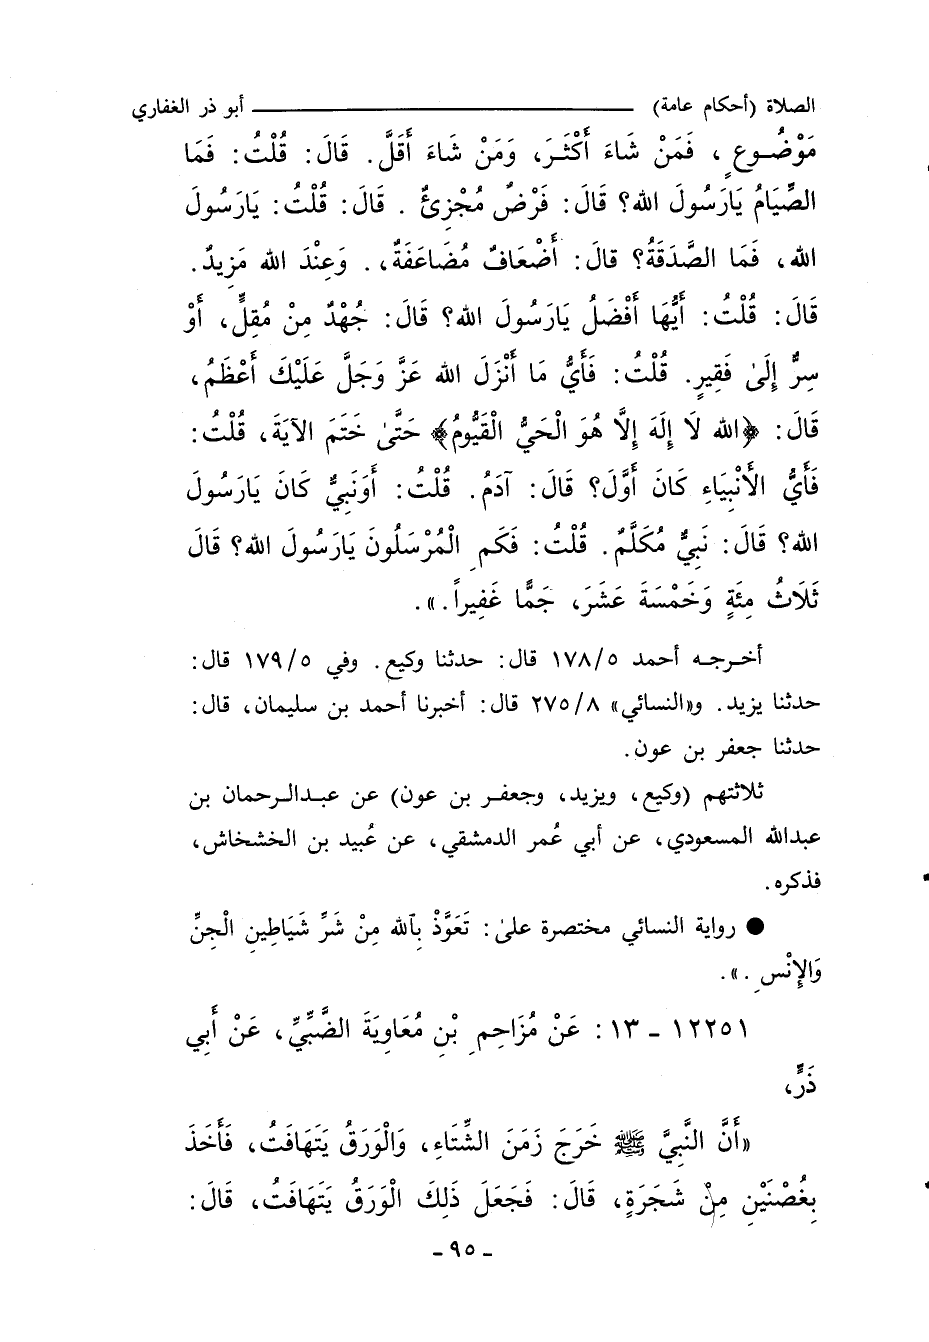 الصلاة (أحكام عامة) ــــــــــــــــــــ أبو ذر الغفاري
مَوْضُوعٍ، فَمَنْ شَاءَ أَكْثَرَ، وَمَنْ شَاءَ أَقَلَّ. قَالَ: قُلْتُ: فَمَا
الصِّيَامُ يَارَسُولَ الله؟ قَالَ: فَرْضٌ مُجْزِئٌ. قَالَ: قُلْتُ: يَارَسُولَ
الله، فَمَا الصَّدَقَةُ؟ قالَ: أَضْعَافٌ مُضَاعَفَةٌ،. وَعِنْدَ الله مَزِيدٌ.
قَالَ: قُلْتُ: أَيُّهَا أَفْضَلُ يَارَسُولَ الله؟ قَالَ: جُهْدٌ مِنْ مُقِلٍّ، أَوْ
سِرٌّ إِلَىٰ فَقِيرٍ. قُلْتُ: فَأَيُّ مَا أَنْزَلَ الله عَزَّ وَجَلَّ عَلَيْكَ أَعْظَمُ،
قَالَ: ﴿الله لَا إِلَهَ إِلَّا هُوَ الْحَيُّ الْقَيُّومُ﴾ حَتَّىٰ خَتَمَ الآيَةَ، قُلْتُ:
فَأَيُّ الأَنْبِيَاءِ كَانَ أَوَّلَ؟ قَالَ: آدَمُ. قُلْتُ: أَوَنَبِيٌّ كَانَ يَارَسُولَ
الله؟ قَالَ: نَبِيٌّ مُكَلَّمٌ. قُلْتُ: فَكَمِ الْمُرْسَلُونَ يَارَسُولَ الله؟ قَالَ
ثَلَاثُ مِئَةٍ وَخَمْسَةَ عَشَرَ، جَمًّا غَفِيراً.».
أخرجه أحمد ١٧٨/٥ قال: حدثنا وكيع. وفي ١٧٩/٥ قال:
حدثنا يزيد. و«النسائي» ٢٧٥/٨ قال: أخبرنا أحمد بن سليمان، قال:
حدثنا جعفر بن عون.
ثلاثتهم (وكيع، ويزيد، وجعفر بن عون) عن عبدالرحمان بن
عبدالله المسعودي، عن أبي عُمر الدمشقي، عن عُبيد بن الخشخاش،
فذكره.
● رواية النسائي مختصرة علىٰ: تَعَوَّذْ بِالله مِنْ شَرِّ شَيَاطِينِ الْجِنِّ
وَالإِنْسِ.».
١٢٢٥١ - ١٣: عَنْ مُزَاحِمِ بْنِ مُعَاوِيَةَ الضَّبِّيِّ، عَنْ أَبِي
ذَرٍّ،
«أَنَّ النَّبِيَّ ﷺ خَرَجَ زَمَنَ الشِّتَاءِ، وَالْوَرَقُ يَتَهَافَتُ، فَأَخَذَ
بِغُصْنَيْنِ مِنْ شَجَرَةٍ، قَالَ: فَجَعَلَ ذَلِكَ الْوَرَقُ يَتَهَافَتُ، قَالَ:
- ٩٥ -